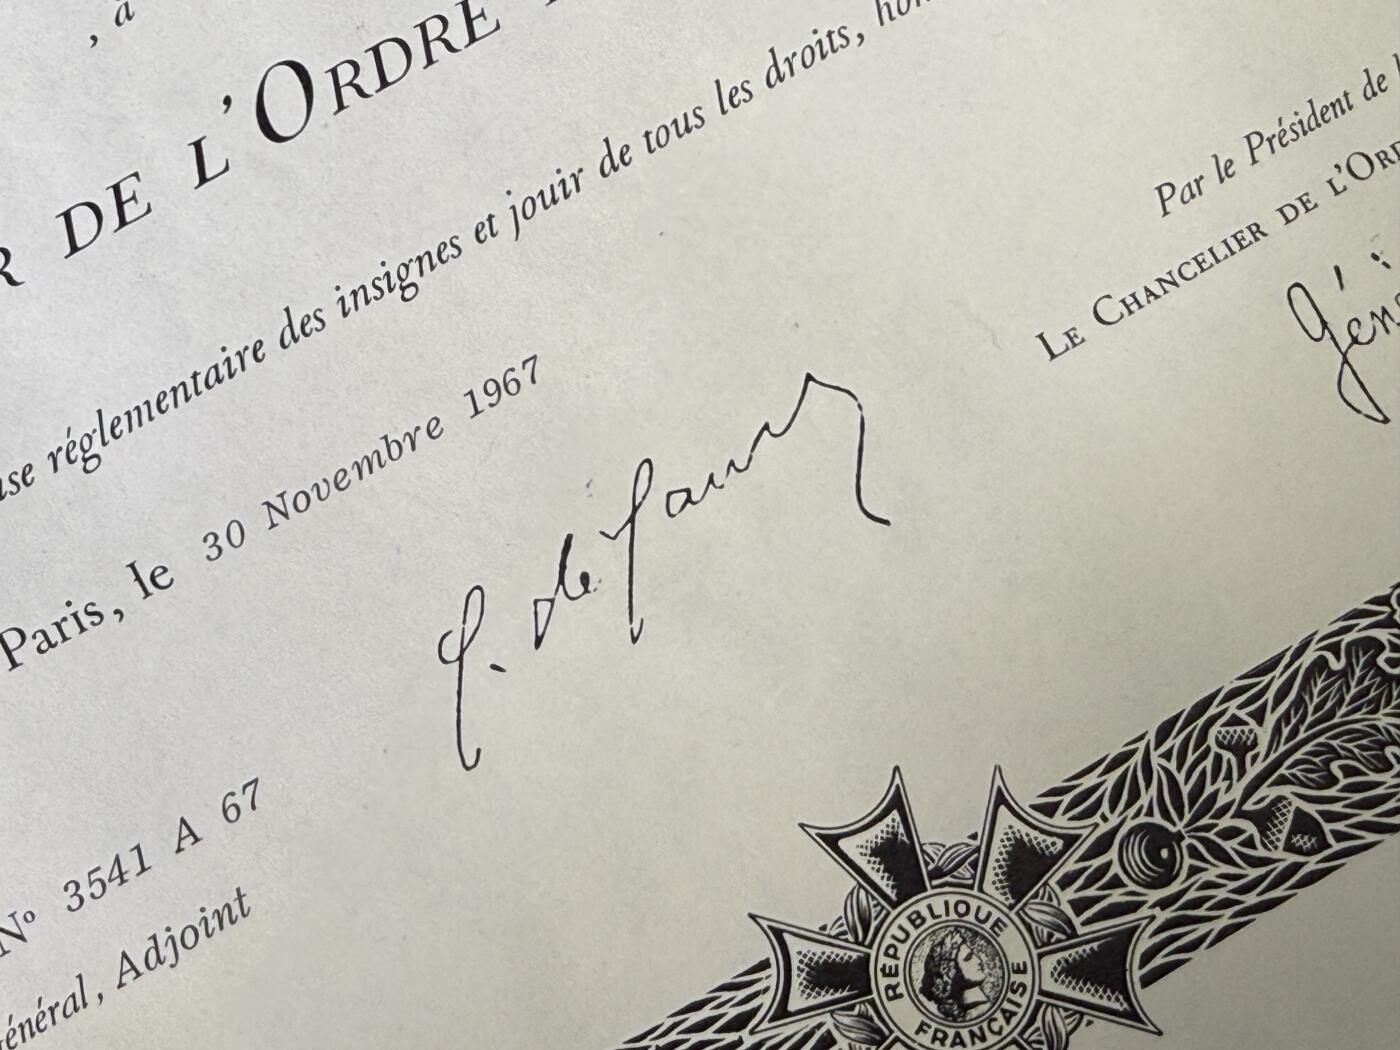 , à
R DE L'ORDRE
use réglementaire des insignes et jouir de tous les droits, hon
Paris, le 30 Novembre 1967
Par le Président de l
LE CHANCELIER DE L'ORD
Géné
C. de Gaulle
Nº 3541 A 67
énéral, Adjoint
RÉPUBLIQUE FRANÇAISE